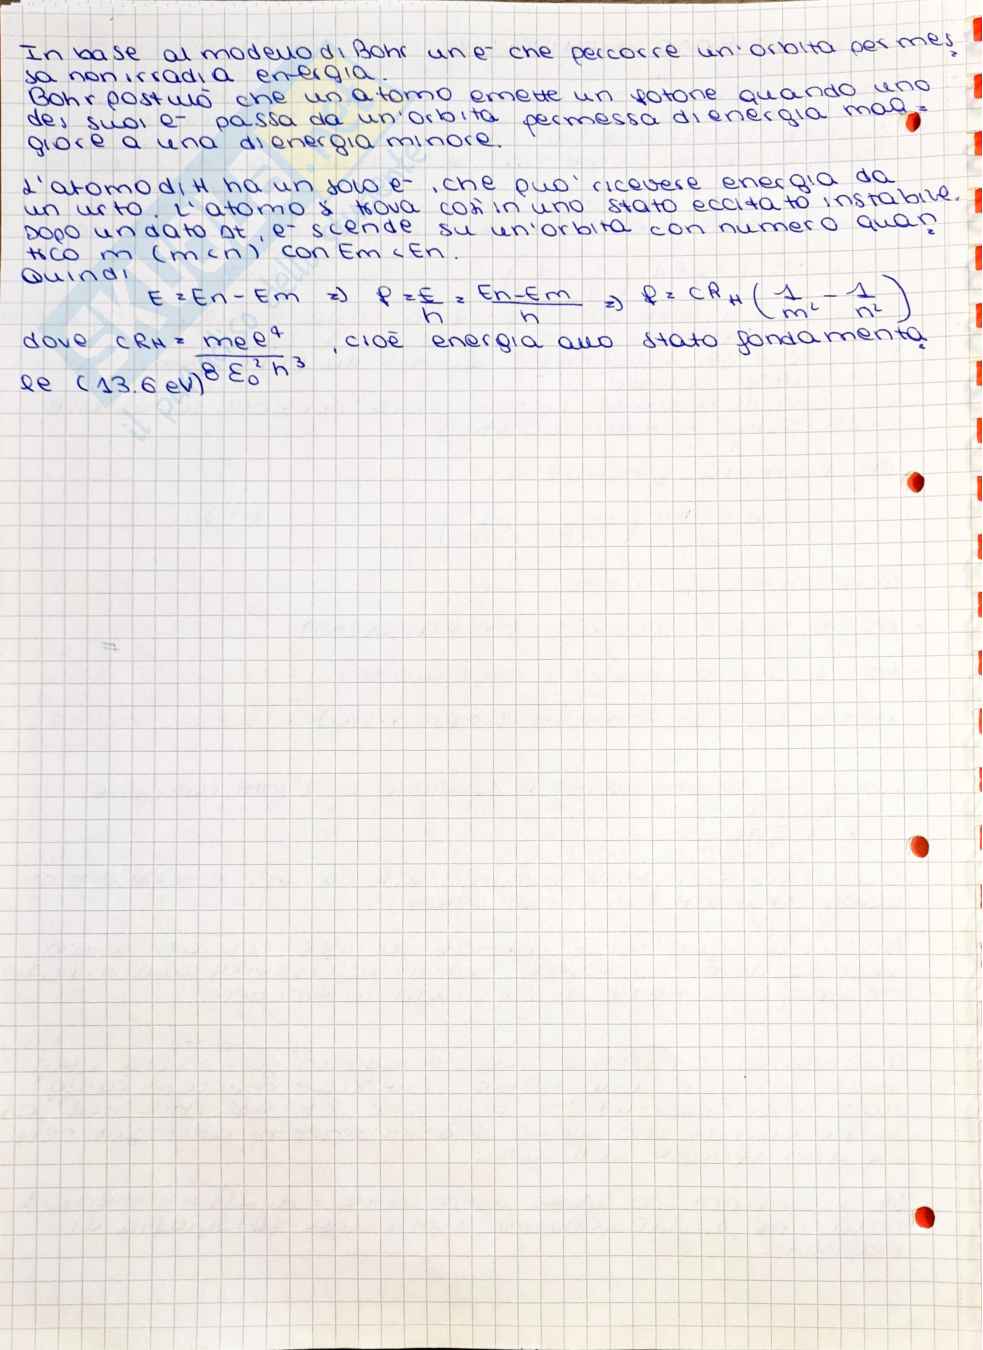 In base al modello di Bohr un e⁻ che percorre un'orbita permes
sa non irradia energia.
Bohr postulò che un atomo emette un fotone quando uno
dei suoi e⁻ passa da un'orbita permessa di energia mag=
giore a una di energia minore.
L'atomo di H ha un solo e⁻, che può ricevere energia da
un urto. L'atomo si trova così in uno stato eccitato instabile.
Dopo un dato Δt, e⁻ scende su un'orbita con numero quan=
tico m (m<n) con Em<En.
Quindi
E = En - Em ⇒ f = E/h = (En - Em)/h ⇒ f = CR_H (1/m² - 1/n²)
dove CR_H = me e⁴ / 8 ε₀² h³, cioè energia allo stato fondamenta
le (13.6 eV)